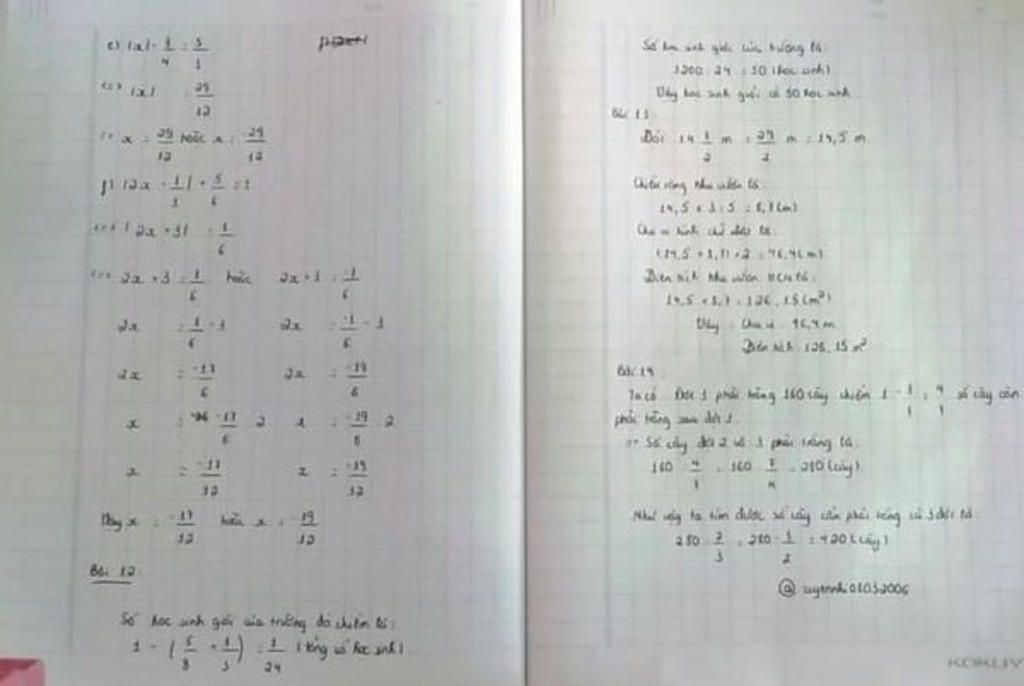 e) |x| - 1/4 = 5/3
<=> |x| = 29/12
<=> x = 29/12 hoặc x = -29/12
f) |2x + 1/3| + 5/6 = 1
<=> |2x + 3| = 1/6
<=> 2x + 3 = 1/6 hoặc 2x + 3 = -1/6
2x = 1/6 - 3 2x = -1/6 - 3
2x = -17/6 2x = -19/6
x = -17/6 : 2 x = -19/6 : 2
x = -17/12 x = -19/12
Vậy x = -17/12 hoặc x = -19/12
Bài 12:
Số học sinh giỏi của trường đó chiếm là:
1 - (5/8 + 1/3) = 1/24 (tổng số học sinh)
Số học sinh giỏi của trường là:
1200 : 24 = 50 (học sinh)
Vậy học sinh giỏi có 50 học sinh
Bài 13:
Đổi: 14 1/2 m = 29/2 m = 14,5 m
Chiều rộng khu vườn là:
14,5 × 3 : 5 = 8,7 (m)
Chu vi hình chữ nhật là:
(14,5 + 8,7) × 2 = 46,4 (m)
Diện tích khu vườn HCN là:
14,5 × 8,7 = 126,15 (m²)
Vậy: Chu vi: 46,4 m
Diện tích: 126,15 m²
Bài 14:
Ta có: Đội 1 phải trồng 160 cây chiếm số cây còn
phải trồng sau đội 1.
=> Số cây đội 2 và 3 phải trồng là:
= 280 (cây)
Như vậy ta tìm được số cây cần phải trồng cả 3 đội là:
= 420 (cây)
@ uyennhi01032006
KOKUYO